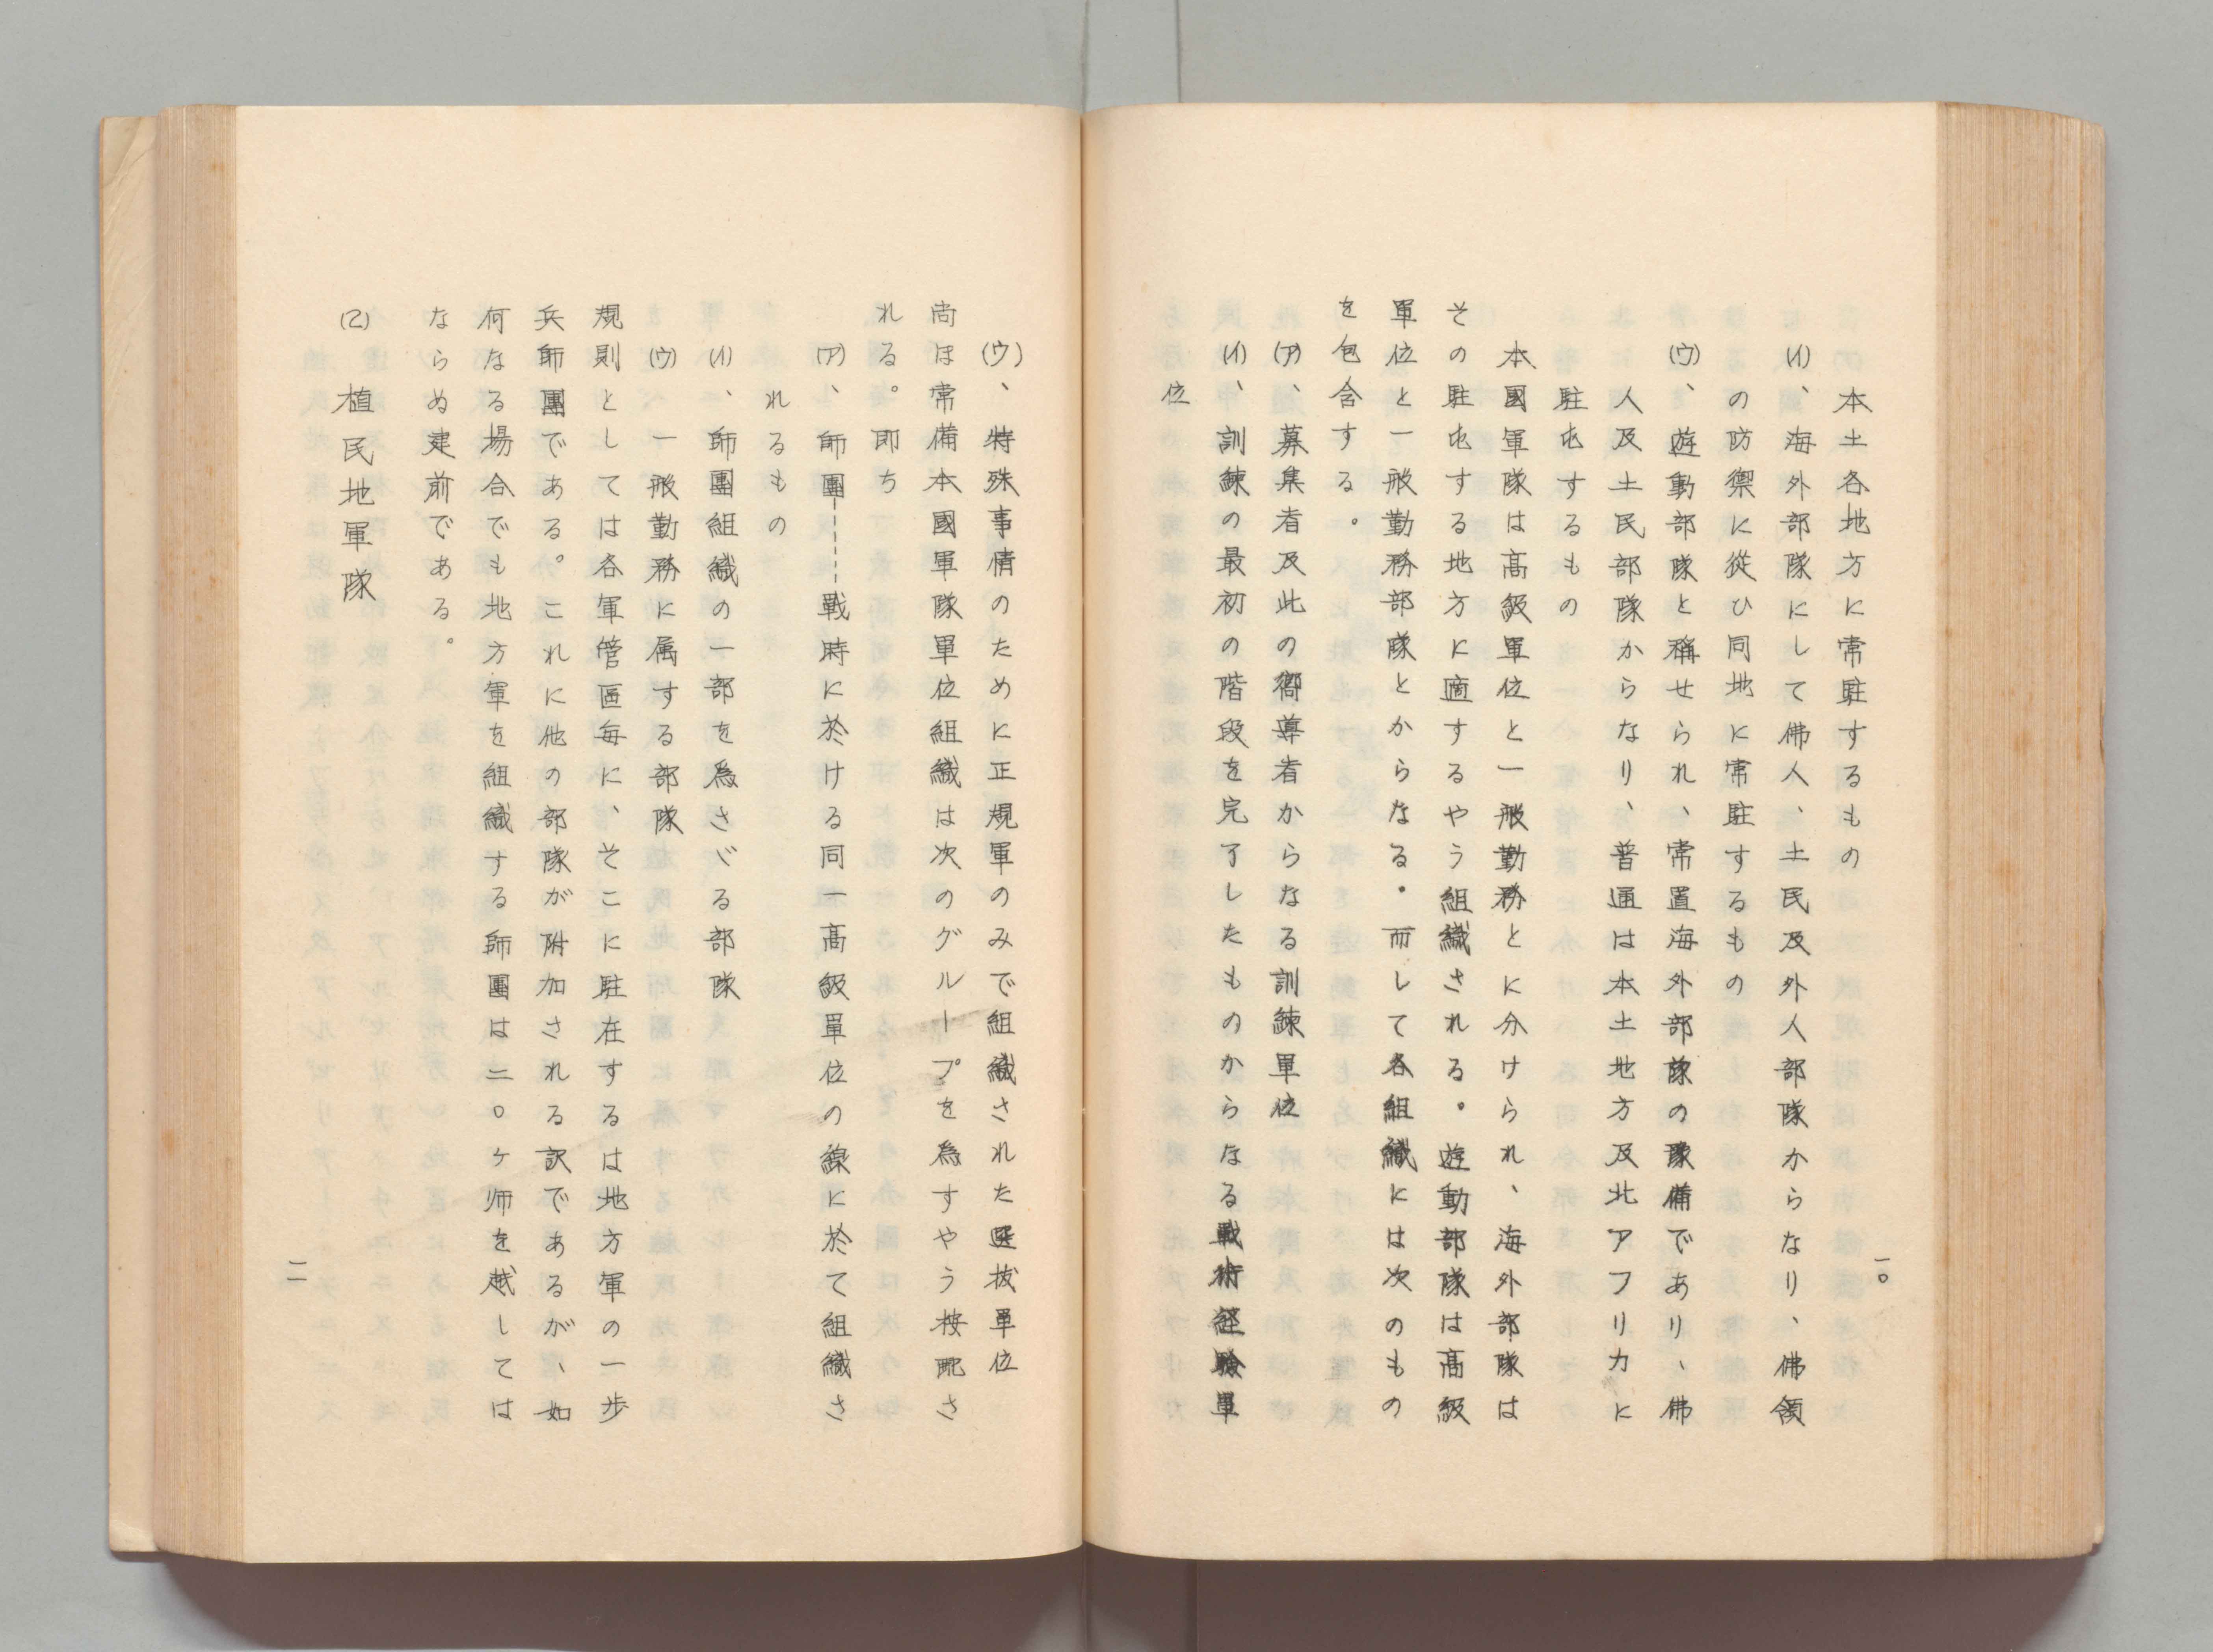 本土各地方に常駐するもの
(イ)、海外部隊にして佛人、土民及外人部隊からなり、佛領
の防禦に從ひ同地に常駐するもの
(ウ)、遊動部隊と稱せられ、常置海外部隊の豫備であり、佛
人及土民部隊からなり、普通は本土地方及北アフリカに
駐屯するもの
本國軍隊は高級單位と一般勤務とに分けられ、海外部隊は
その駐屯する地方に適するやう組織される。遊動部隊は高級
單位と一般勤務部隊とからなる。而して各組織には次のもの
を包含する。
(ア)、募集者及此の嚮導者からなる訓練單位
(イ)、訓練の最初の階段を完了したものからなる戰術経驗單
位
一〇
(ウ)、特殊事情のために正規軍のみで組織された選拔單位
尚ほ常備本國軍隊單位組織は次のグループを爲すやう按配さ
れる。即ち
(ア)、師團-----戰時に於ける同一高級單位の線に於て組織さ
れるもの
(イ)、師團組織の一部を爲さゞる部隊
(ウ) 一般勤務に属する部隊
規則としては各軍管區每に、そこに駐在するは地方軍の一步
兵師團である。これに他の部隊が附加される訳であるが、如
何なる場合でも地方軍を組織する師團は二〇ヶ师を越しては
ならぬ建前である。
(乙) 植民地軍隊
一一